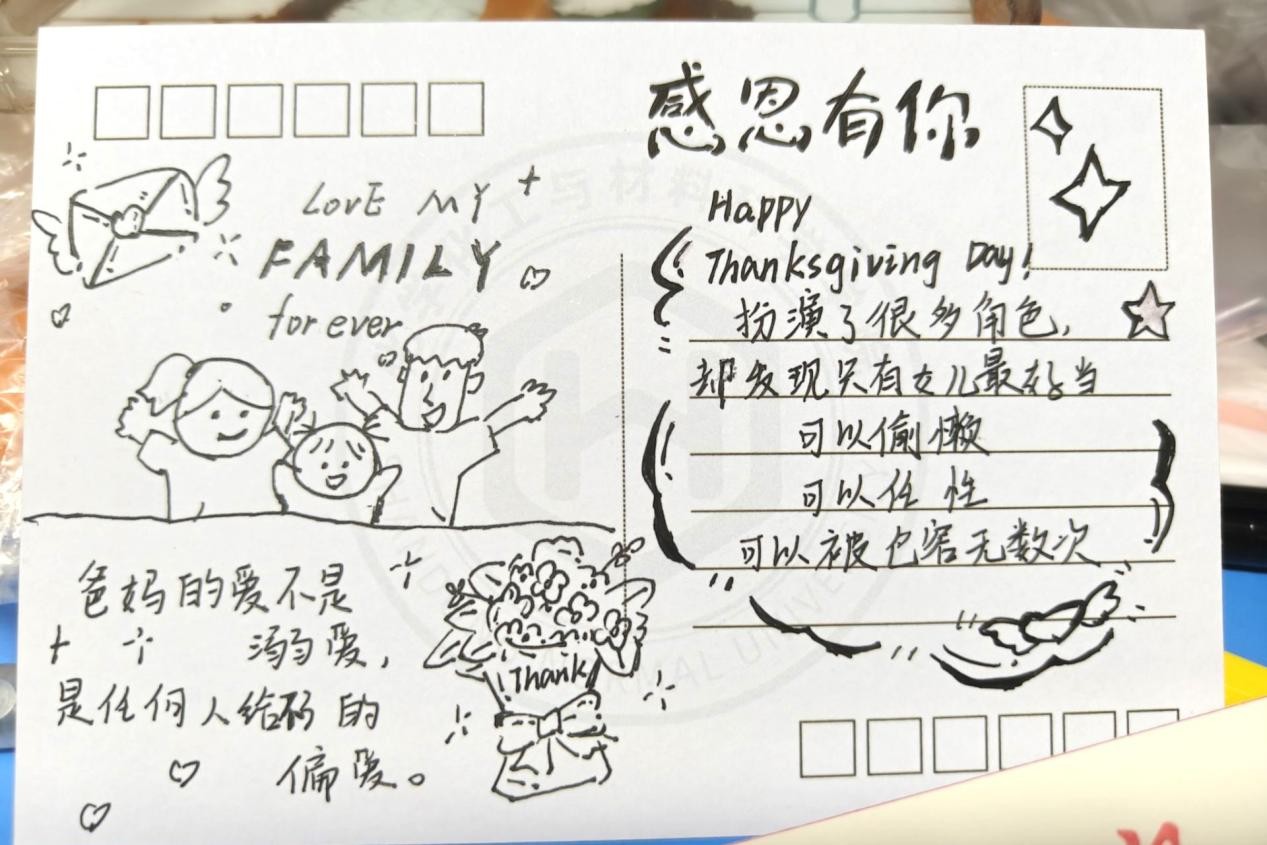 LovE MY
FAMILY
forever
爸妈的爱不是
溺爱,
是任何人给不了的
偏爱。
Thank
感恩有你
Happy
Thanksgiving Day!
扮演了很多角色,
却发现只有女儿最好当
可以偷懒
可以任性
可以被包容无数次
工与材料
NORMAL UNIVERSITY